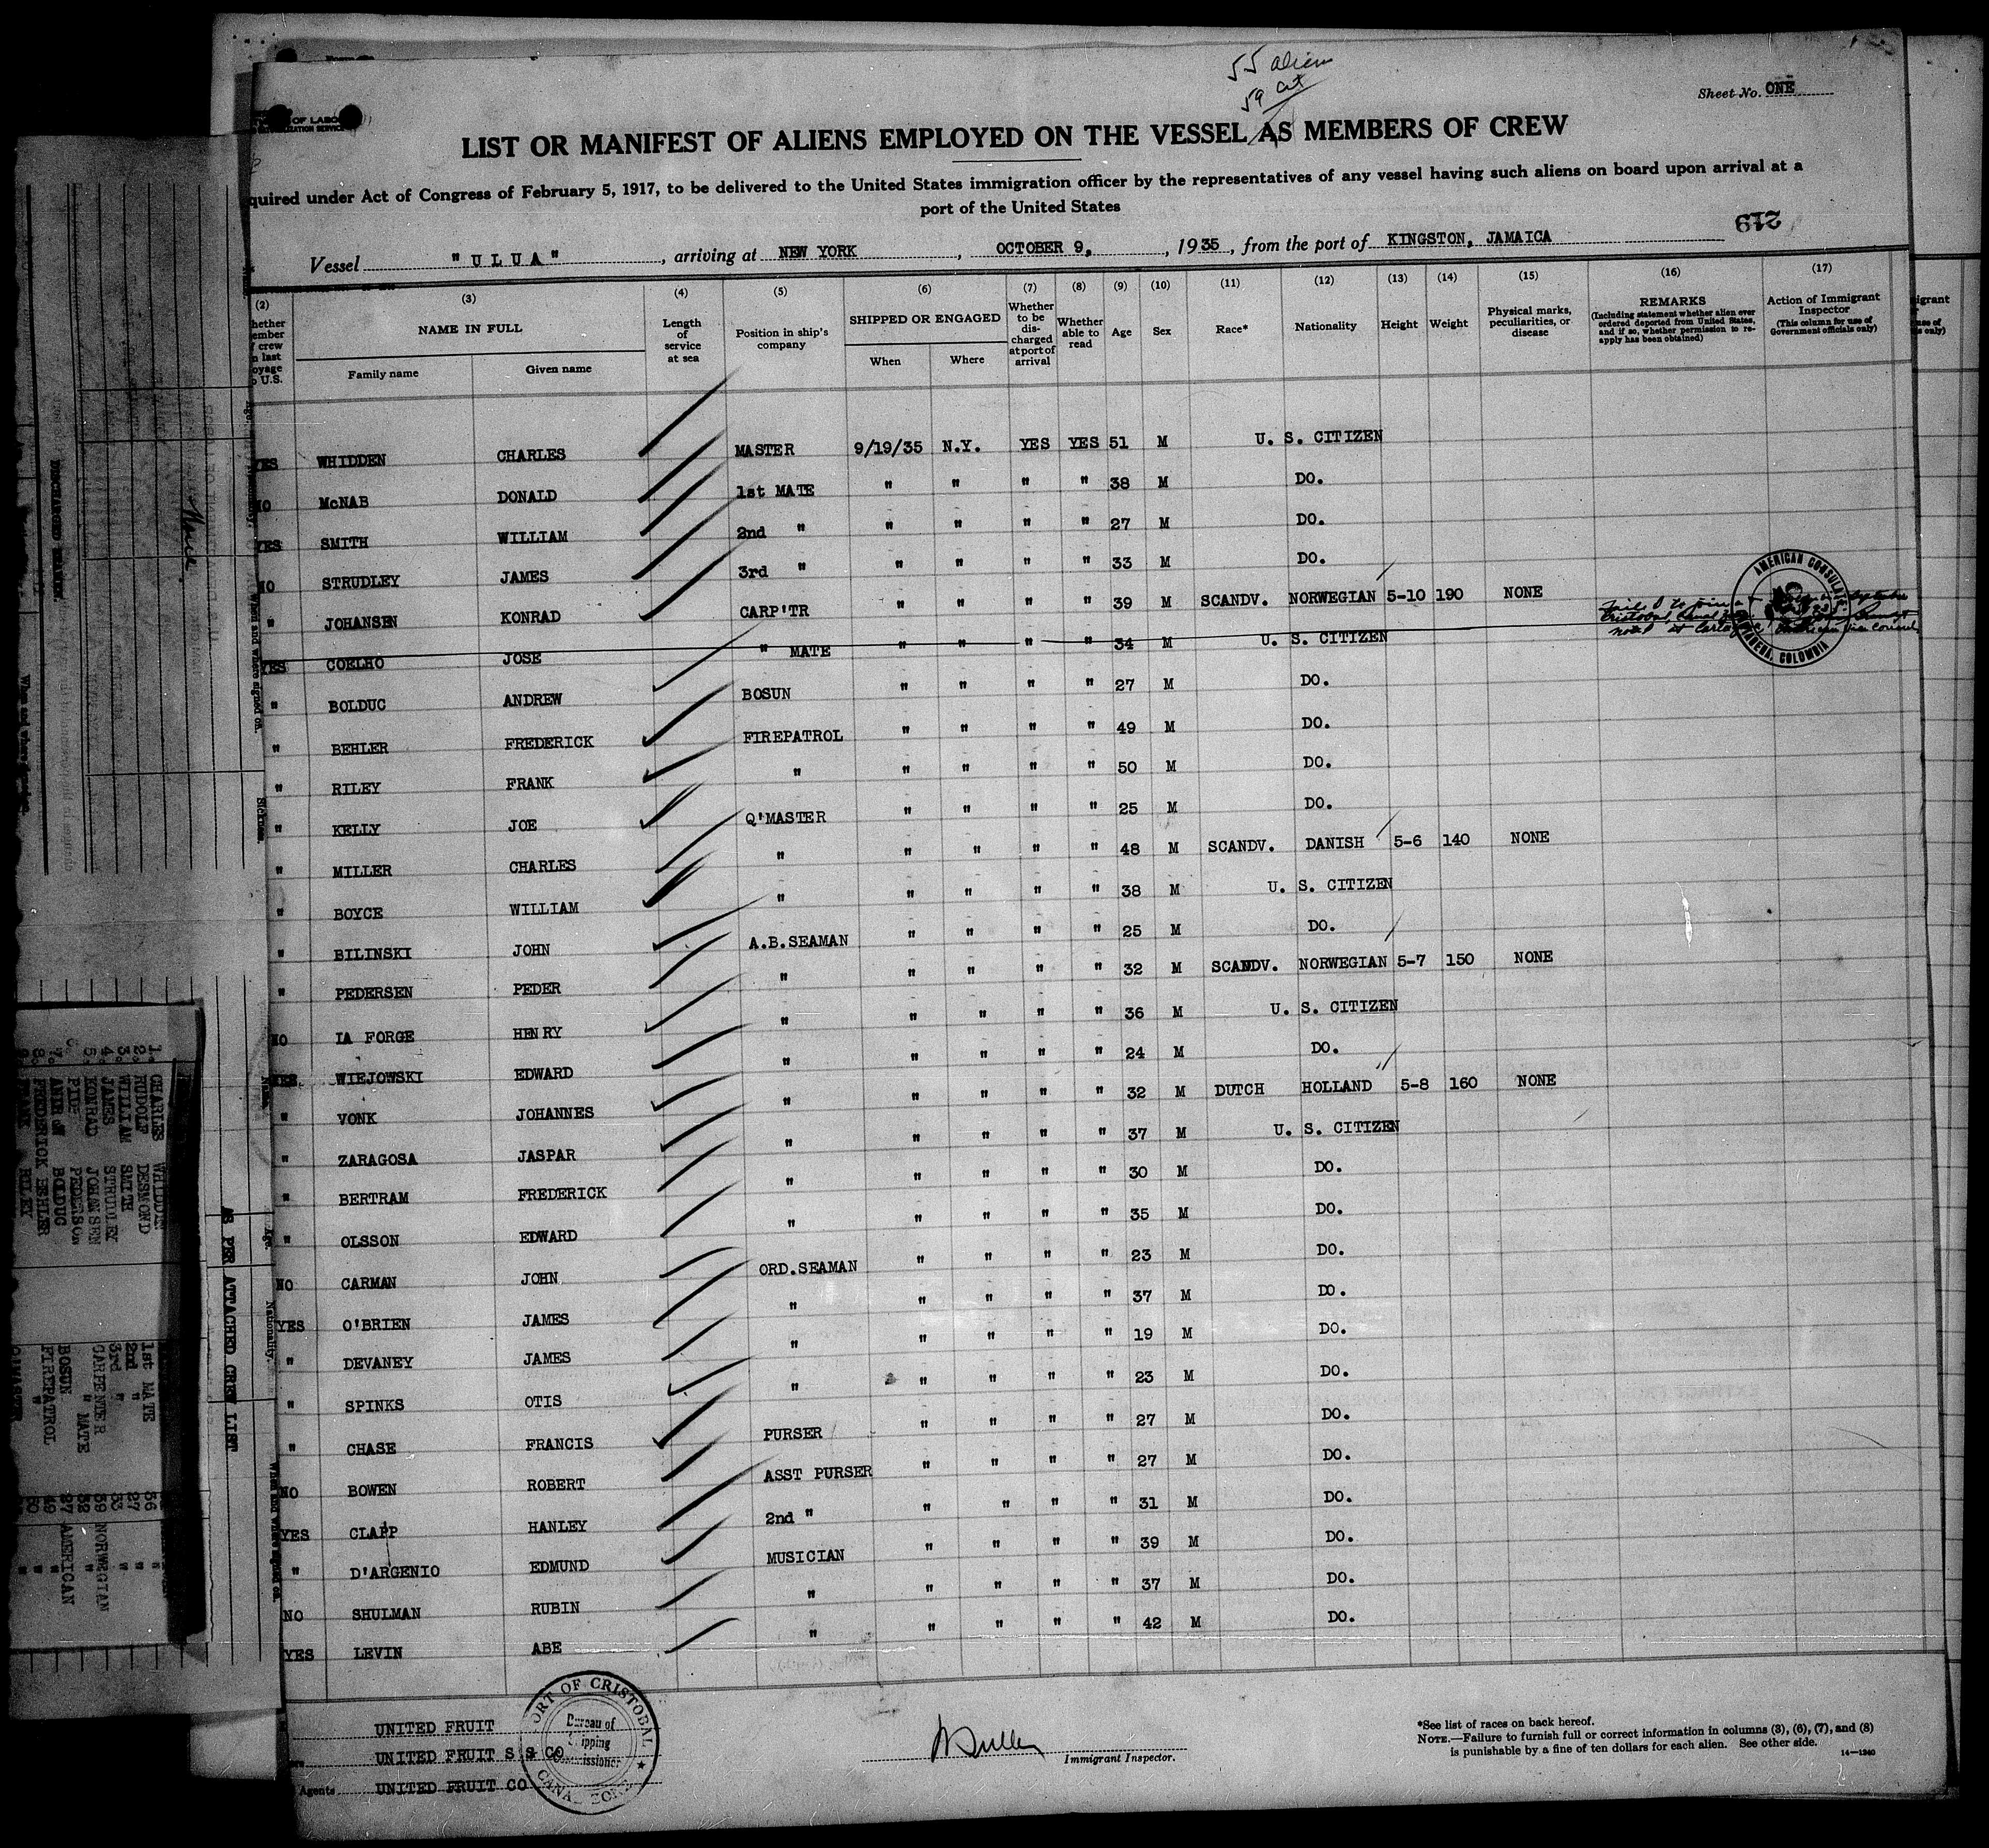 55 alien
59 cit
Sheet No. ONE
OF LABO
LIST OR MANIFEST OF ALIENS EMPLOYED ON THE VESSEL AS MEMBERS OF CREW
quired under Act of Congress of February 5, 1917, to be delivered to the United States immigration officer by the representatives of any vessel having such aliens on board upon arrival at a
port of the United States
219
Vessel "ULUA", arriving at NEW YORK, OCTOBER 9, 1935, from the port of KINGSTON, JAMAICA
(2) (3) (4) (5) (6) (7) (8) (9) (10) (11) (12) (13) (14) (15) (16) (17)
hether ember f crew n last oyage o U.S. NAME IN FULL Family name Given name Length of service at sea Position in ship's company SHIPPED OR ENGAGED When Where Whether to be discharged at port of arrival Whether able to read Age Sex Race* Nationality Height Weight Physical marks, peculiarities, or disease REMARKS (Including statement whether alien ever ordered deported from United States, and if so, whether permission to re-apply has been obtained) Action of Immigrant Inspector (This column for use of Government officials only)
YES WHIDDEN CHARLES MASTER 9/19/35 N.Y. YES YES 51 M U. S. CITIZEN
NO McNAB DONALD 1st MATE " " " " 38 M DO.
YES SMITH WILLIAM 2nd " " " " " 27 M DO.
NO STRUDLEY JAMES 3rd " " " " " 33 M DO.
" JOHANSEN KONRAD CARP'TR " " " " 39 M SCANDV. NORWEGIAN 5-10 190 NONE
YES COELHO JOSE " MATE " " " " 34 M U. S. CITIZEN
" BOLDUC ANDREW BOSUN " " " " 27 M DO.
" BEHLER FREDERICK FIREPATROL " " " " 49 M DO.
" RILEY FRANK " " " " " 50 M DO.
" KELLY JOE Q'MASTER " " " " 25 M DO.
" MILLER CHARLES " " " " " 48 M SCANDV. DANISH 5-6 140 NONE
" BOYCE WILLIAM " " " " " 38 M U. S. CITIZEN
" BILINSKI JOHN A.B.SEAMAN " " " " 25 M DO.
" PEDERSEN PEDER " " " " " 32 M SCANDV. NORWEGIAN 5-7 150 NONE
NO LA FORGE HENRY " " " " " 36 M U. S. CITIZEN
YES WIEJOWSKI EDWARD " " " " " 24 M DO.
" VONK JOHANNES " " " " " 32 M DUTCH HOLLAND 5-8 160 NONE
" ZARAGOSA JASPAR " " " " " 37 M U. S. CITIZEN
" BERTRAM FREDERICK " " " " " 30 M DO.
" OLSSON EDWARD " " " " " 35 M DO.
NO CARMAN JOHN ORD.SEAMAN " " " " 23 M DO.
YES O'BRIEN JAMES " " " " " 37 M DO.
" DEVANEY JAMES " " " " " 19 M DO.
" SPINKS OTIS " " " " " 23 M DO.
" CHASE FRANCIS PURSER " " " " 27 M DO.
NO BOWEN ROBERT ASST PURSER " " " " 27 M DO.
YES CLAPP HANLEY 2nd " " " " " 31 M DO.
" D'ARGENIO EDMUND MUSICIAN " " " " 39 M DO.
NO SHULMAN RUBIN " " " " " 37 M DO.
YES LEVIN ABE " " " " " 42 M DO.
AMERICAN CONSULATE
COLOMBIA
UNITED FRUIT
UNITED FRUIT S S CO
Agents UNITED FRUIT CO
PORT OF CRISTOBAL
Bureau of Shipping Commissioner
CANAL ZONE
Immigrant Inspector.
*See list of races on back hereof.
NOTE.—Failure to furnish full or correct information in columns (3), (6), (7), and (8)
is punishable by a fine of ten dollars for each alien. See other side.
14—1240
AS PER ATTACHED CREW LIST
1. CHARLES WHIDDEN
2. RUDOLF DESMOND 1st MATE 36
3. WILLIAM SMITH 2nd " 27
4. JAMES STRUDLEY 3rd " 33
5. KONRAD JOHANSEN CARPENTER 39 NORWEGIAN
PEDERSON " MATE 32 "
7. ANDREW BOLDUC BOSUN 27 AMERICAN
8. FREDERICK BEHLER FIREPATROL 49 "
FRANK RILEY " 50 "